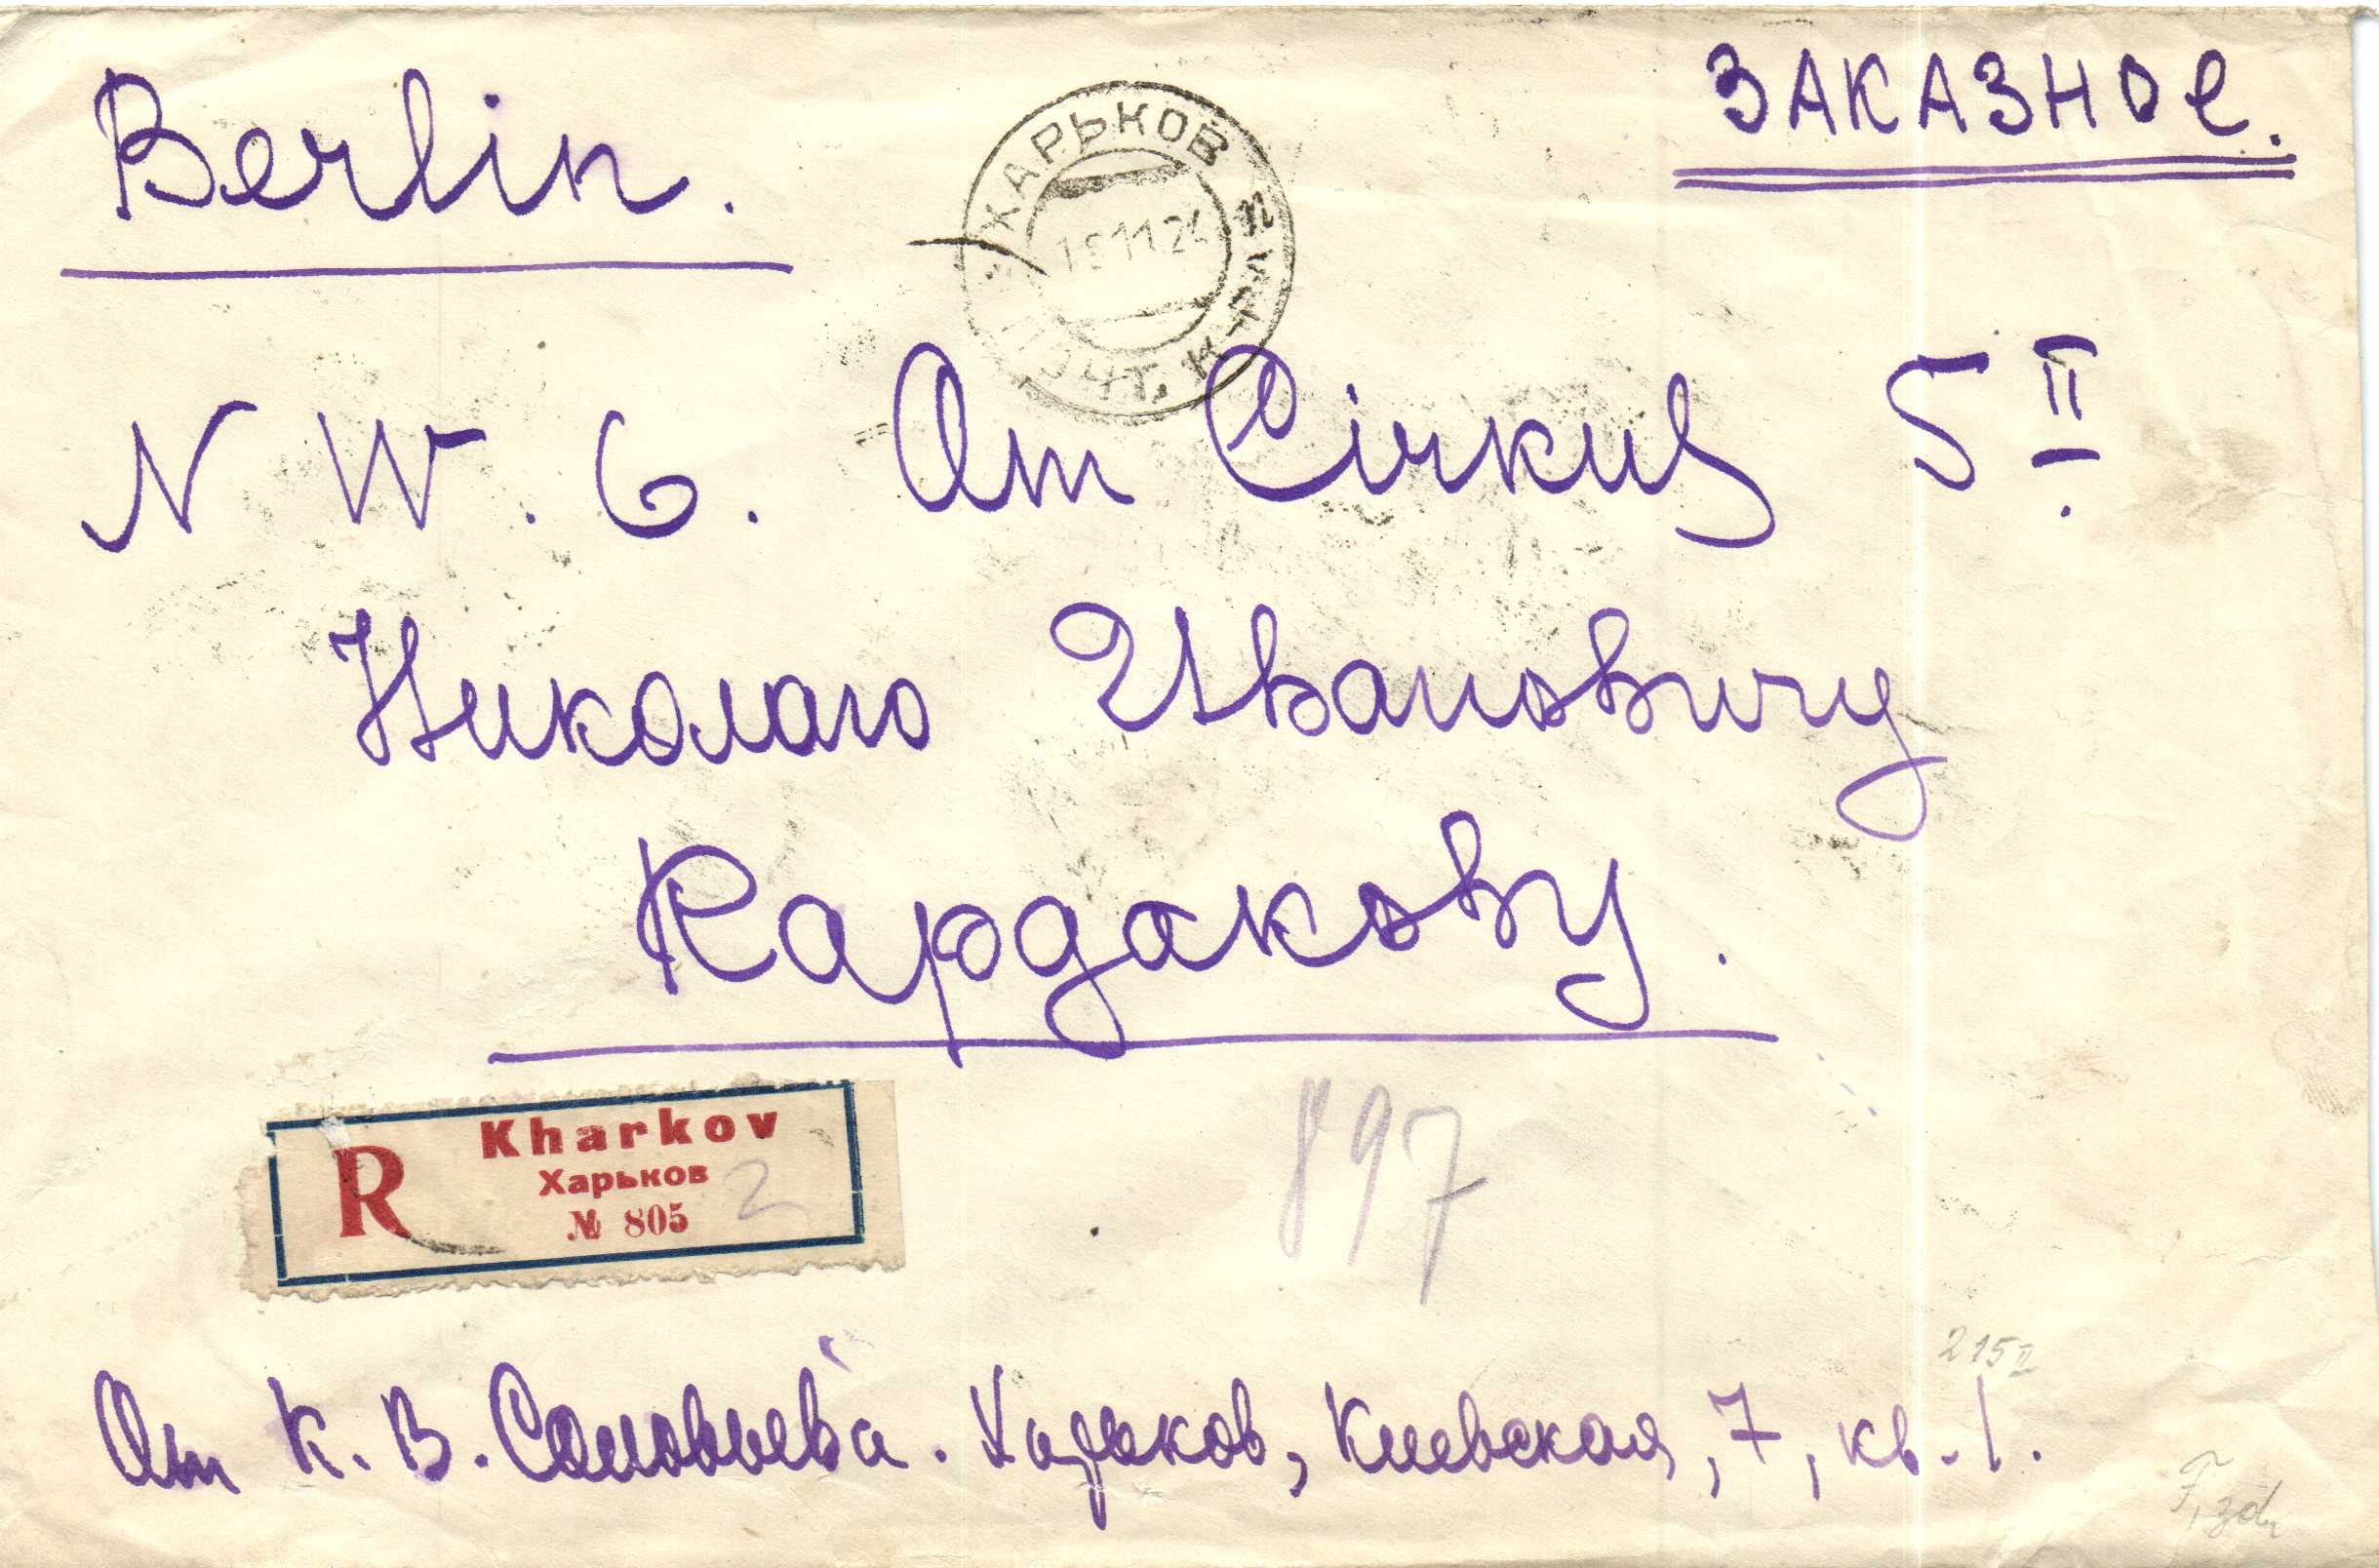 Berlin.
ЗАКАЗНОЕ.
ХАРЬКОВ
ПОЧТ.
N W. 6. Am Cirkus 5 II.
Николаю Ивановичу
Кардакову.
R
Kharkov
Харьков
№ 805
2
897
215 II
От К. В. Соловьева. Харьков, Киевская, 7, кв. 1.